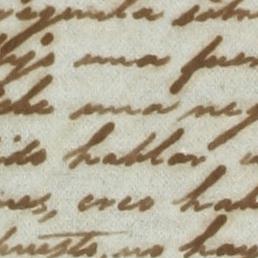 segunda sobre
dijo una fuer
che una neg
ido hablar u
nes, creo hab
puesto, no hay